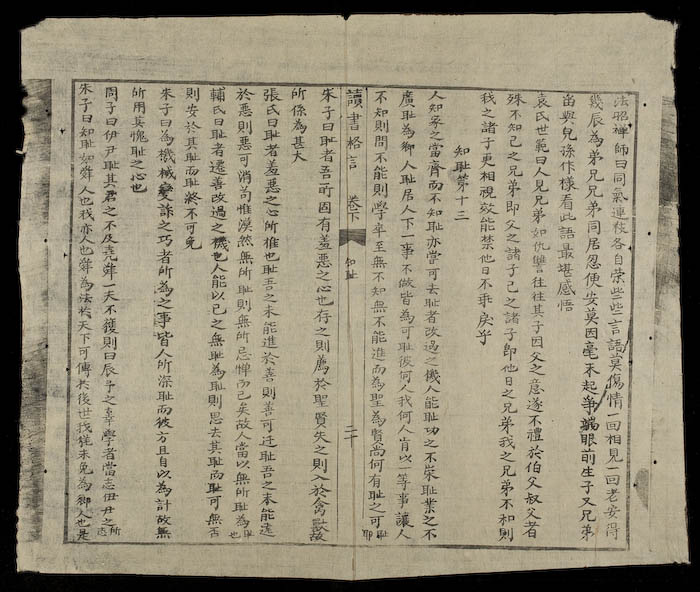 法昭禪師曰同氣連枝各自荣些些言語莫傷情一回相見一回老安得
幾辰為弟兄兄弟同居忍便安莫因毫末起爭端眼前生子又兄弟
畄與兒孫作樣看此語最堪感悟
袁氏世範曰人見兄弟如仇讐往往其子因父之意遂不禮於伯父叔父者
殊不知己之兄弟即父之諸子己之諸子即他日之兄弟我之兄弟不和則
我之諸子更相視效能禁他日不乖戾乎
知耻第十三
人知之當齊而不知耻亦當可去耻者改過之機人能耻功之不崇耻業之不
廣耻為鄉人耻居人下一事不做皆為可耻彼何人我何人肯以一等事讓人
不知則問不能則學卒至無不知無不能進而為聖為賢尚何有耻之可耻耶
讀書格言 卷下 知耻 二十
朱子曰耻者吾所固有羞惡之心也存之則為於聖賢失之則入於禽獸故
所係為甚大
張氏曰耻者羞惡之心所推也耻吾之未能進於善則善可迁耻吾之未能遠
於惡則惡可消苟惟漠然無所耻則無所忌憚而已矣故人當以無所耻為耻也
輔氏曰耻者遷善改過之機也人能以己之無耻為耻則思去其耻而耻可無否
則安於其耻而耻終不可免
朱子曰為機械變詐之巧者所為之事皆人所深耻而彼方且自以為計故無
所用其愧耻之心也
周子曰伊尹耻其君之不及堯舜一夫不獲則曰辰予之辜學者當志伊尹之所志
朱子曰知耻如舜人也我亦人也舜為法於天下可傳於後世我猶未免為鄉人也是